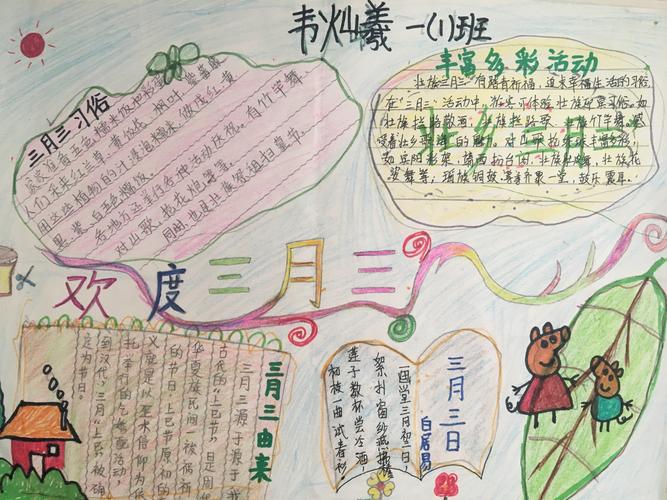 韦灿羲 一(1)班
三月三习俗
家家准备五色糯米饭和彩蛋
人们采来红兰草、黄饭花、枫叶、紫蕃藤
用这些植物的汁浸泡糯米,做成红、黄
黑、紫、白五色糯饭。
各地方还举行各种活动庆祝。有竹竿舞
对山歌、抢花炮等等。
同时,也是壮族祭祖扫墓节。
丰富多彩活动
壮族三月三有踏青祈福,追求幸福生活的习俗
在“三月三”活动中,游客可体验壮族歌圩习俗。如
壮族拦路敬酒、壮族拦路歌、壮族竹竿舞、感
受着壮乡歌海的魅力。对山歌抛绣球丰富多彩,
如岳阳彩架,靖西扮台阁,壮族舞,壮族花
婆舞等;瑶族铜鼓舞等齐聚一堂,鼓乐震耳。
壮乡三月三
欢度三月三
三月三由来
三月三源于源于我
古代的“上巳节”,是周
华夏族民间
的节日,上巳节原初的
义应是以巫术信仰为依
托,举行的活动,
到汉代,三月“上巳”被确
定为节日。
三月三日
白居易
画堂三月初三日,
絮扑窗纱燕拂檐。
莲子数杯尝冷酒,
柘枝一曲试春衫。